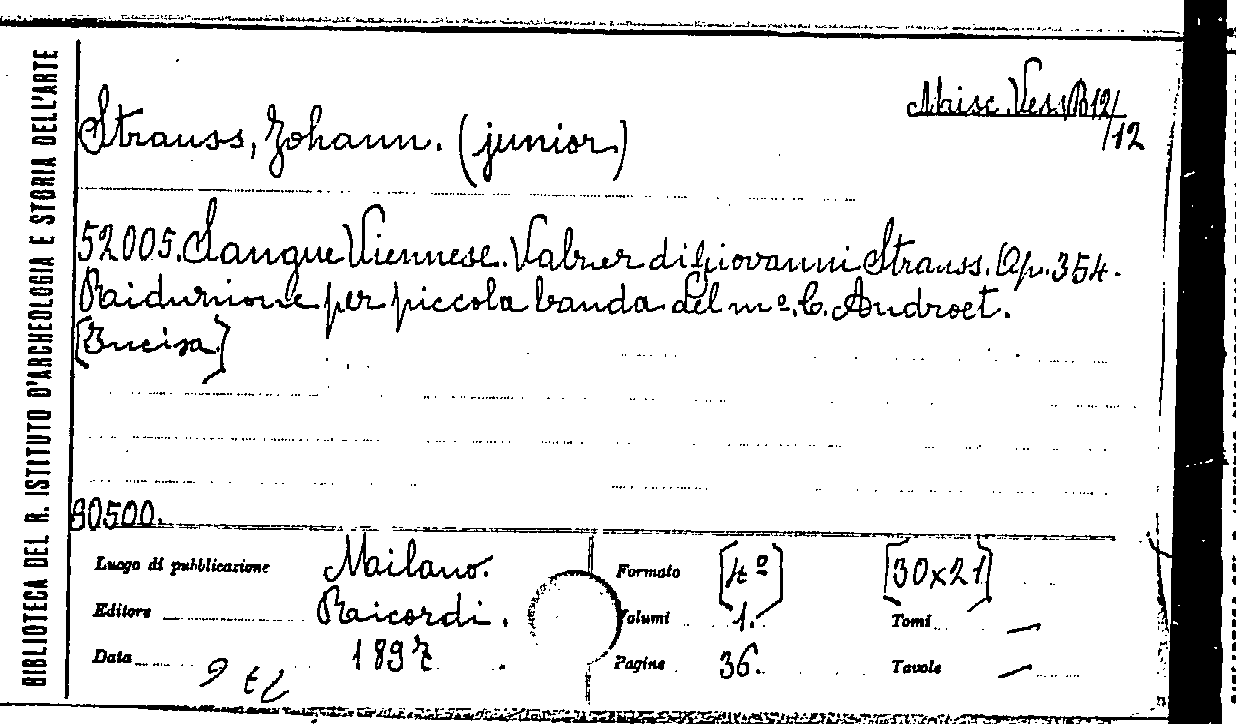 BIBLIOTECA DEL R. ISTITUTO D'ARCHEOLOGIA E STORIA DELL'ARTE
Misc. Vess. B12/12
Strauss, Johann. (junior)
52005. Sangue Viennese. Valzer di Giovanni Strauss. Op. 354.
Riduzione per piccola banda del mº. C. Androet.
[Incisa]
80500.
Luogo di pubblicazione Milano. Formato [4º] [30x21]
Editore Ricordi. Volumi 1. Tomi —
Data 1897. Pagine 36. Tavole —